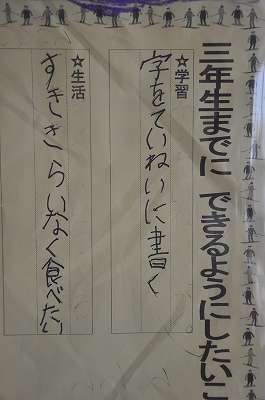 三年生までに できるようにしたいこ
☆学習
字をていねいに書く
☆生活
すききらいなく食べたい